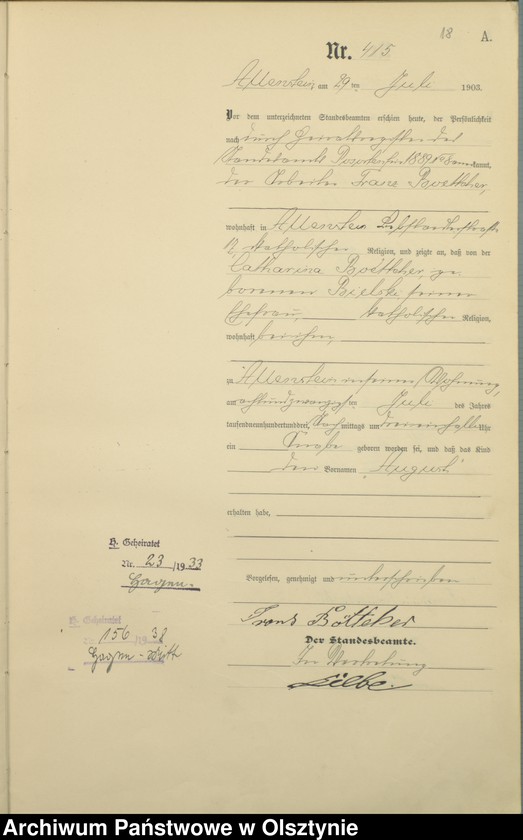 18 A.
Nr. 415.
Allenstein, am 29 ten Juli 1903.
Vor dem unterzeichneten Standesbeamten erschien heute, der Persönlichkeit
nach durch Heiratsregister des
Standesamts 1889 kannt,
der Arbeiter Franz Boettcher,
wohnhaft in Allenstein
12, katholischer Religion, und zeigte an, daß von der
Catharina Boettcher, ge
borenen Bielski, seiner
Ehefrau, katholischer Religion,
wohnhaft bei ihm,
zu Allenstein in seiner Wohnung,
am achtundzwanzigsten Juli des Jahres
tausendneunhundertunddrei, Nachmittags um drei einhalb Uhr
ein Knabe geboren worden sei, und daß das Kind
den Vornamen „August“
erhalten habe,
H. Geheiratet
Nr. 23 /1933
Hagen.
Vorgelesen, genehmigt und unterschrieben
H. Geheiratet
Nr. 156 /1938
Hagen
Franz Böttcher
Der Standesbeamte.
In Vertretung
Archiwum Państwowe w Olsztynie